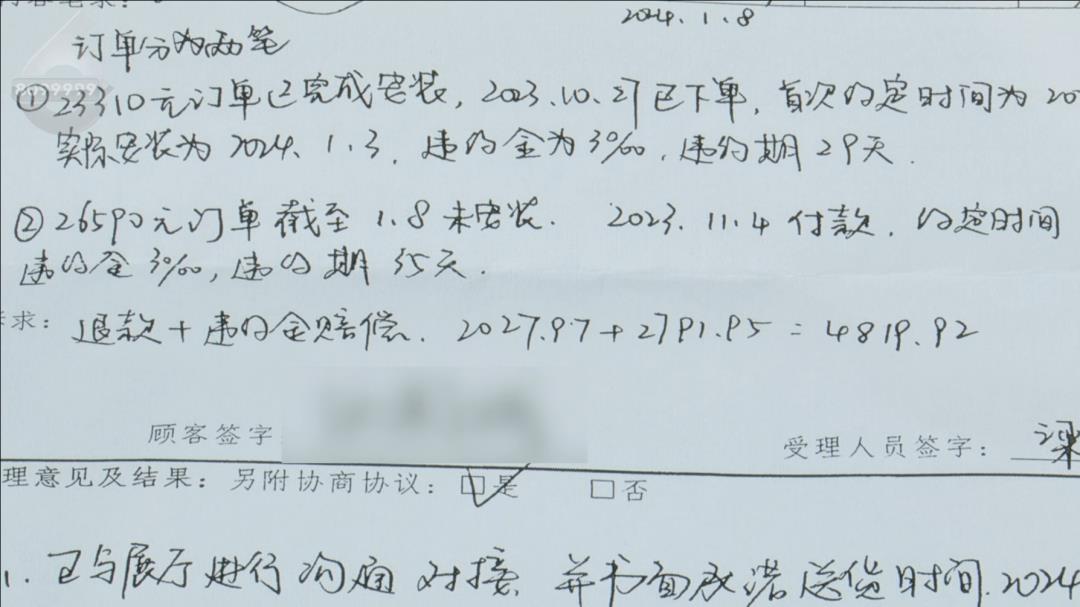 2024.1.8
订单分为两笔
①23310元订单已完成安装，2023.10.27已下单，首次约定时间为20
实际安装为2024.1.3，违约金为3‰，违约期29天.
②26590元订单截至1.8未安装. 2023.11.4付款，约定时间
违约金3‰，违约期35天.
求：退款+违约金赔偿. 2027.97+2791.95=4819.92
顾客签字
受理人员签字：梁
理意见及结果：另附协商协议：□是 □否
1.已与展厅进行沟通对接，并书面承诺送货时间.2024